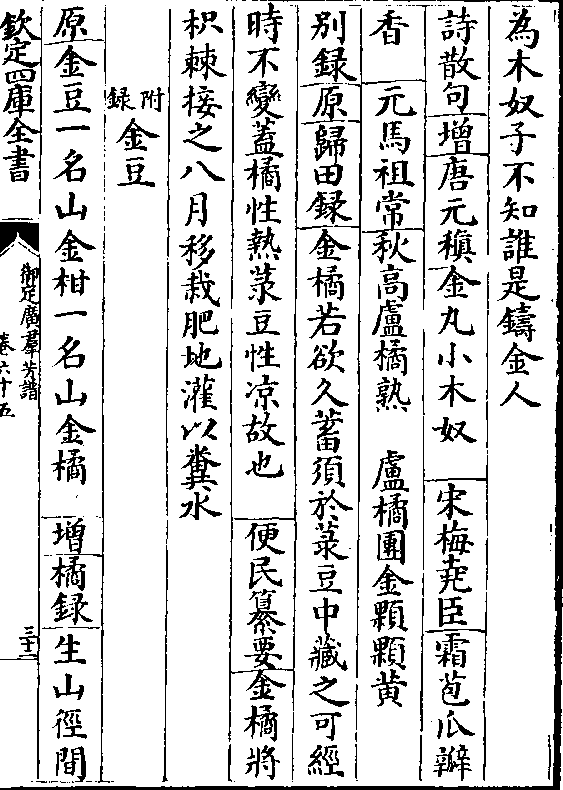 為木奴子不知誰是鑄金人
詩散句增唐元稹金丸小木奴　宋梅堯臣霜苞瓜瓣
香　元馬祖常秋高盧橘熟　盧橘團金顆顆黄
别録原歸田録金橘若欲久蓄須於菉豆中藏之可經
時不變蓋橘性熱菉豆性凉故也　便民纂要金橘將
枳棘接之八月移栽肥地灌以糞水
附録金豆
原金豆一名山金柑一名山金橘　增橘録生山徑間
欽定四庫全書
御定廣羣芳譜
卷六十五
三十二